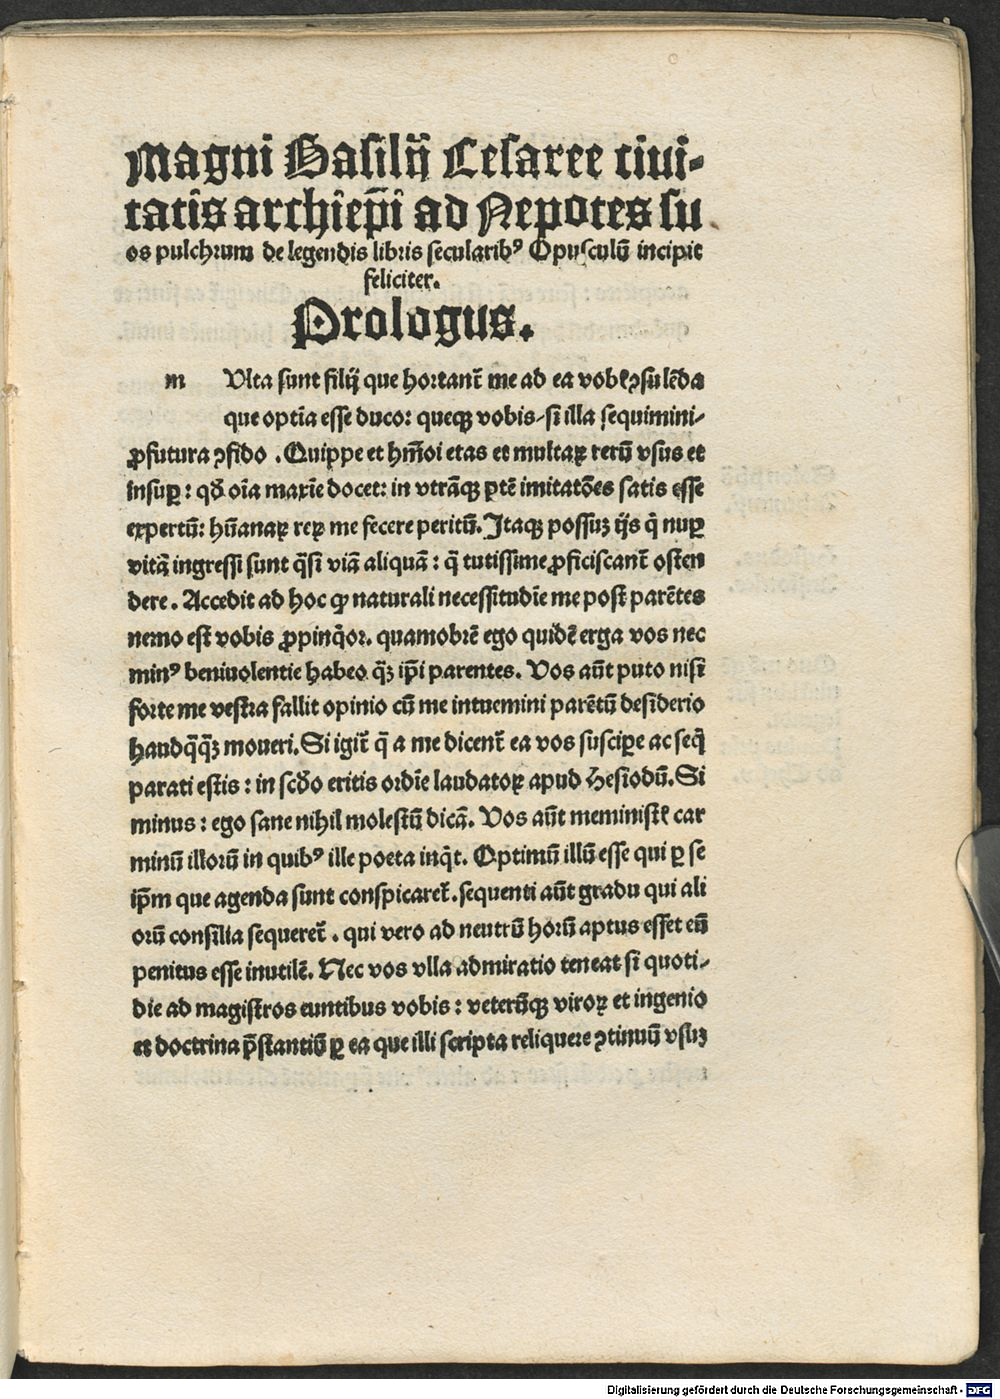 Magni Basilij Cesaree ciui-
tatis archiep̄i ad Nepotes su
os pulchrum de legendis libris secularibꝰ Opusculū incipit
feliciter.
Prologus.
m Vlta sunt filij que hortant᷑ me ad ea vobꝭ ꝯsulēda
que optīa esse duco: queqꝫ vobis-si illa sequimini-
ꝓfutura ꝯfido . Quippe et hm̄oi etas et multaꝝ rerū vsus et
insuꝑ: qđ oīa maxīe docet: in vtrāqꝫ ꝑtē imitatōes satis esse
expertū: hūanaꝝ reꝝ me fecere peritū. Itaqꝫ possuꝫ ijs q̄ nuꝑ
vitā ingressi sunt q̄si viā aliquā : q̄ tutissime ꝓficiscant᷑ osten
dere . Accedit ad hoc ꝙ naturali necessitudīe me post parētes
nemo est vobis ꝓpinq̄or. quamobrē ego quidē erga vos nec
minꝰ beniuolentie habeo q̄ꝫ ip̄i parentes. Vos aūt puto nisi
forte me vestra fallit opinio cū me intuemini parētū desiderio
haudq̄q̄ꝫ moueri. Si igit᷑ q̄ a me dicent᷑ ea vos susciꝑe ac seq̄
parati estis : in scđo eritis ordīe laudatoꝝ apud Hesiodū. Si
minus : ego sane nihil molestū dicā. Vos aūt meministꝭ car
minū illorū in quibꝰ ille poeta inq̄t. Optimū illū esse qui ꝑ se
ip̄m que agenda sunt conspicaret᷑. sequenti aūt gradu qui ali
orū consilia sequeret᷑ . qui vero ad neutrū horū aptus esset eū
penitus esse inutilē. Nec vos vlla admiratio teneat si quoti-
die ad magistros euntibus vobis : veterūqꝫ viroꝝ et ingenio
et doctrina p̄stantiū ꝑ ea que illi scripta reliquere ꝯtinuū vsuꝫ
Digitalisierung gefördert durch die Deutsche Forschungsgemeinschaft - DFG